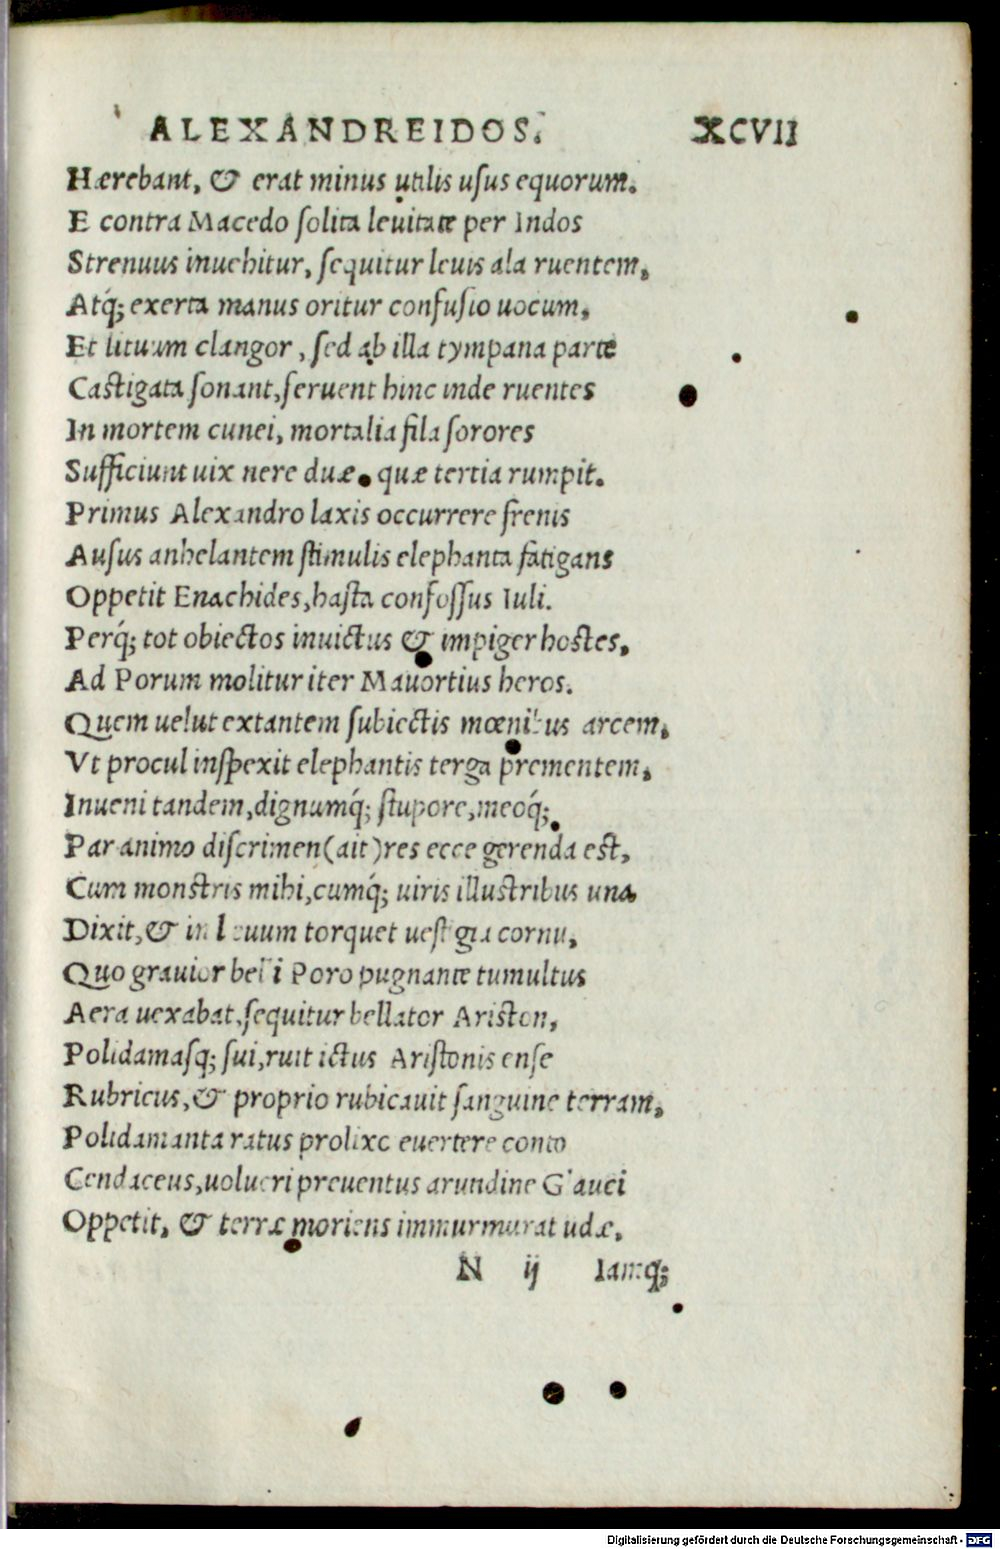 ALEXANDREIDOS. XCVII
Hærebant, & erat minus utilis usus equorum.
E contra Macedo ſolita leuitate per Indos
Strenuus inuehitur, ſequitur leuis ala ruentem,
Atq́; exerta manus oritur confuſio uocum,
Et lituum clangor, ſed ab illa tympana parte
Caſtigata ſonant, feruent hinc inde ruentes
In mortem cunei, mortalia fila ſorores
Sufficiunt uix nere duæ. quæ tertia rumpit.
Primus Alexandro laxis occurrere frenis
Auſus anhelantem ſtimulis elephanta fatigans
Oppetit Enachides, haſta confoſſus Iuli.
Perq́; tot obiectos inuictus & impiger hoſtes,
Ad Porum molitur iter Mauortius heros.
Quem uelut extantem ſubiectis mœnibus arcem,
Vt procul inſpexit elephantis terga prementem,
Inueni tandem, dignumq́; ſtupore, meoq́;
Par animo diſcrimen (ait) res ecce gerenda eſt,
Cum monſtris mihi, cumq́; uiris illuſtribus una
Dixit, & in leuum torquet ueſtigia cornu,
Quo grauior belli Poro pugnante tumultus
Aera uexabat, ſequitur bellator Ariſton,
Polidamaſq; ſui, ruit ictus Ariſtonis enſe
Rubricus, & proprio rubicauit ſanguine terram,
Polidamanta ratus prolixo euertere conto
Cendaceus, uolucri preuentus arundine Glauci
Oppetit, & terræ moriens immurmurat udæ.
N ij Iamq́;
Digitalisierung gefördert durch die Deutsche Forschungsgemeinschaft - DFG